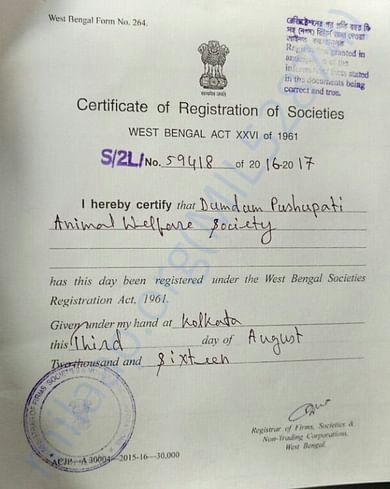 West Bengal Form No. 264.
Registration granted in
stated
in the documents being
correct and true.
सत्यमेव जयते
Certificate of Registration of Societies
WEST BENGAL ACT XXVI of 1961
S/2L/No. 59418 of 2016-2017
I hereby certify that Dumdum Pushupati
Animal Welfare Society
has this day been registered under the West Bengal Societies
Registration Act, 1961.
Given under my hand at Kolkata
this Third day of August
Two thousand and Sixteen
Registrar of Firms, Societies &
Non-Trading Corporations,
West Bengal.
2015-16—30,000